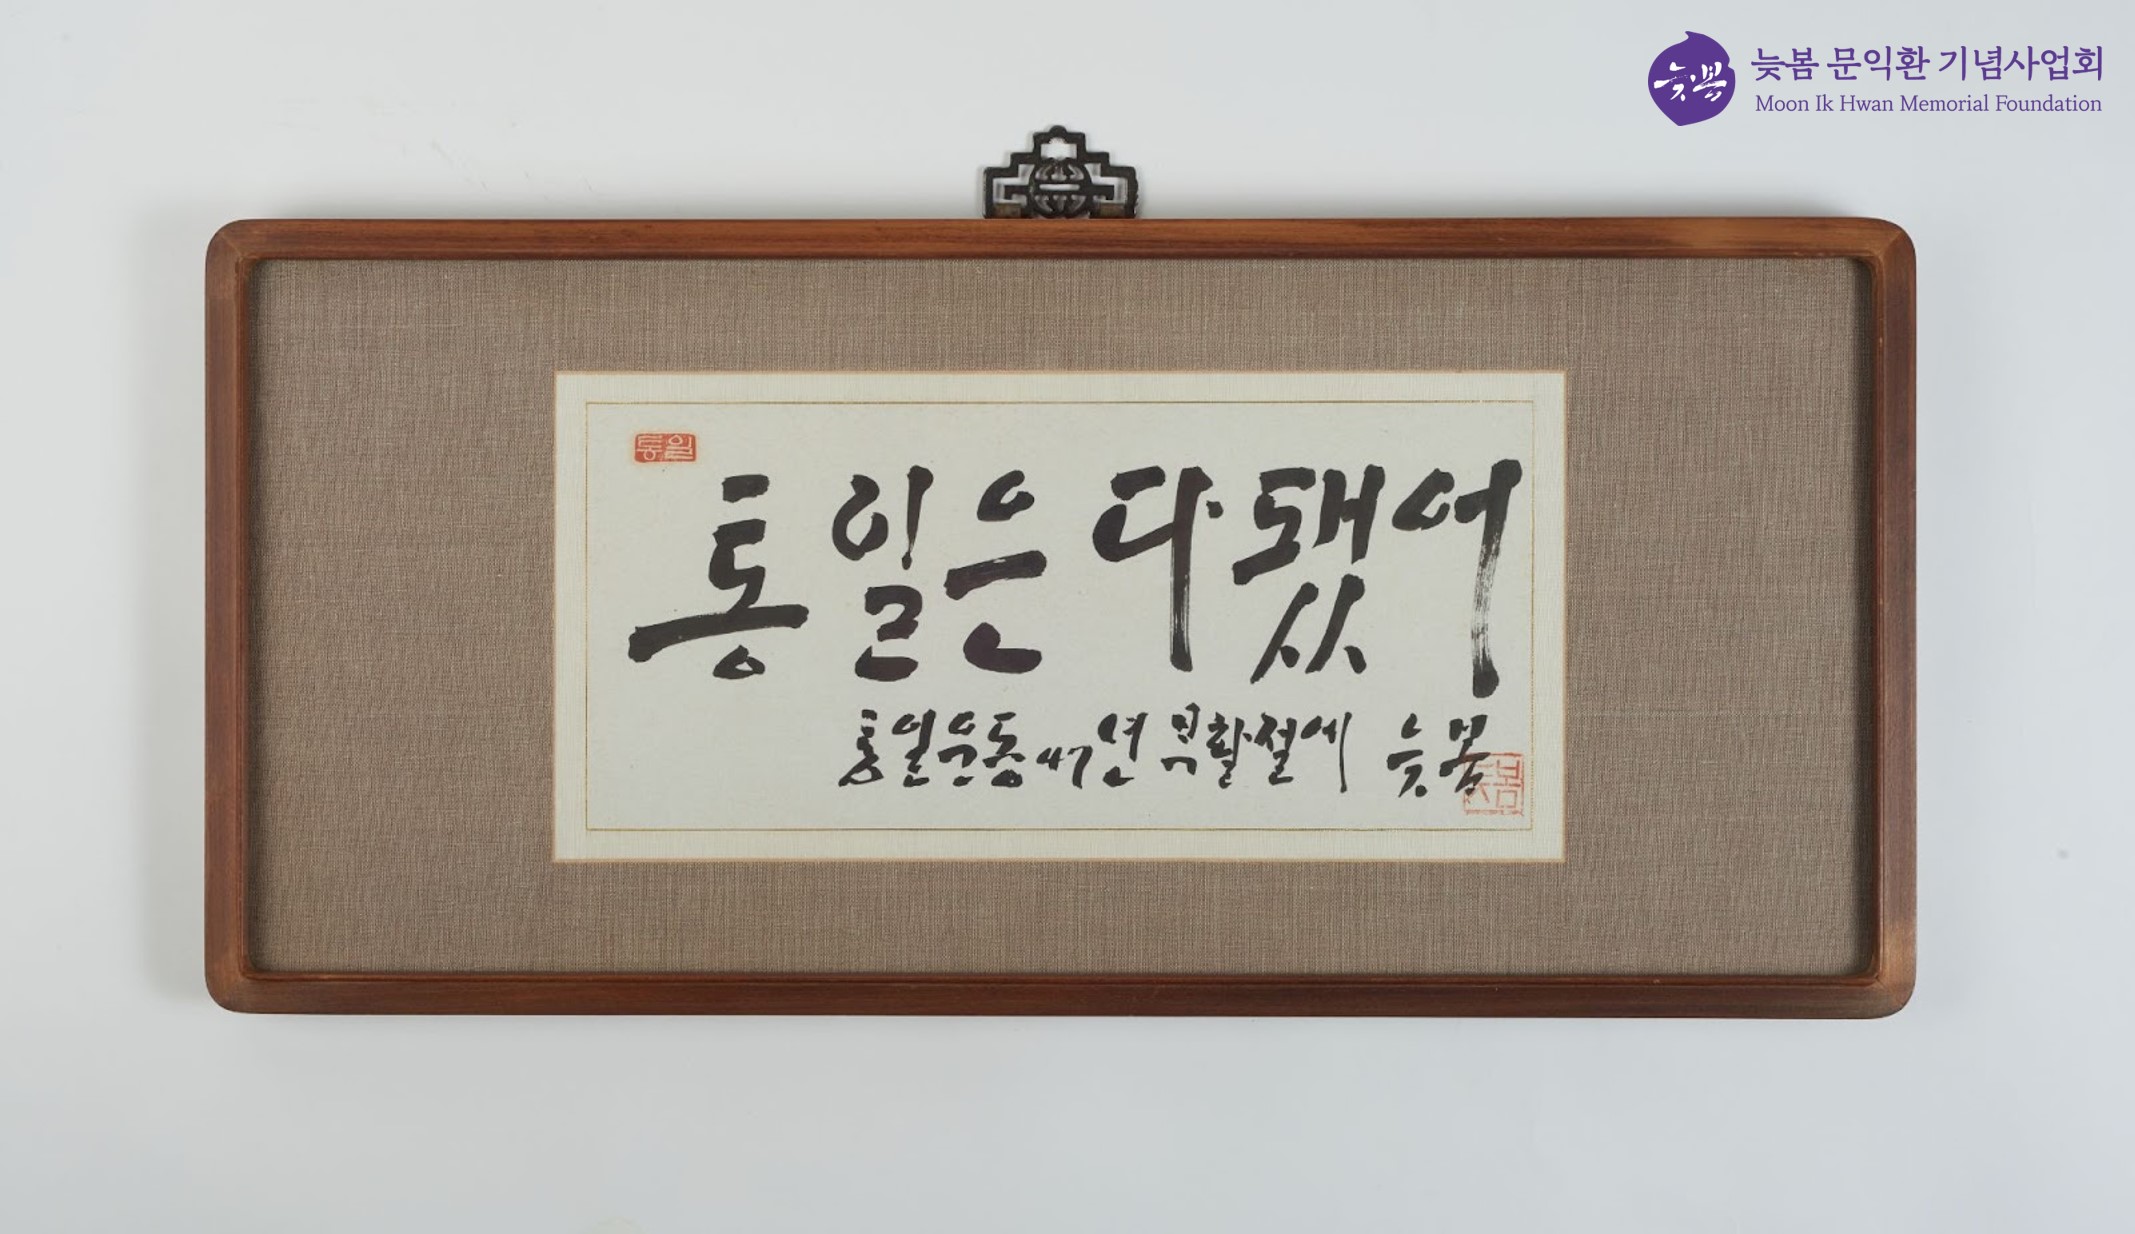 늦봄 문익환 기념사업회
Moon Ik Hwan Memorial Foundation
늦봄
통일
통일은 다 됐어
통일운동 47년 부활절에 늦봄
늦봄